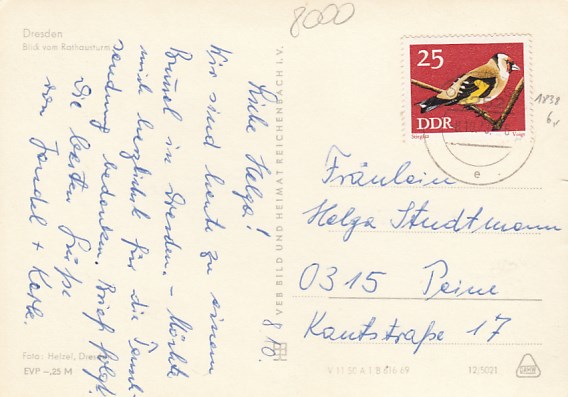 8000
Dresden
Blick vom Rathausturm
8.10.
Liebe Helga!
Wir sind heute zu einem
Bummel in Dresden. – Möchte
mich herzlich für die Tausch-
sendung bedanken. Brief folgt!
Die besten Grüße
von
Foto: Helzel, Dresden
EVP –.25 M
VEB BILD UND HEIMAT REICHENBACH I. V.
25
DDR
Stieglitz
Voigt
1838
Fräulein
Helga Studtmann
0315 Peine
Kantstraße 17
V 11 50 A 1 B 616 69
12/5021